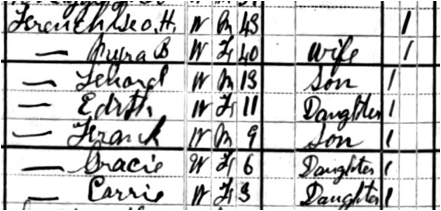 French Geo. H. W M 43 1
— B W F 40 Wife 1
— W M 13 Son 1
— Edith W F 11 Daughter 1
— Frank W M 9 Son 1
— Gracie W F 6 Daughter 1
— Carrie W F 3 Daughter 1